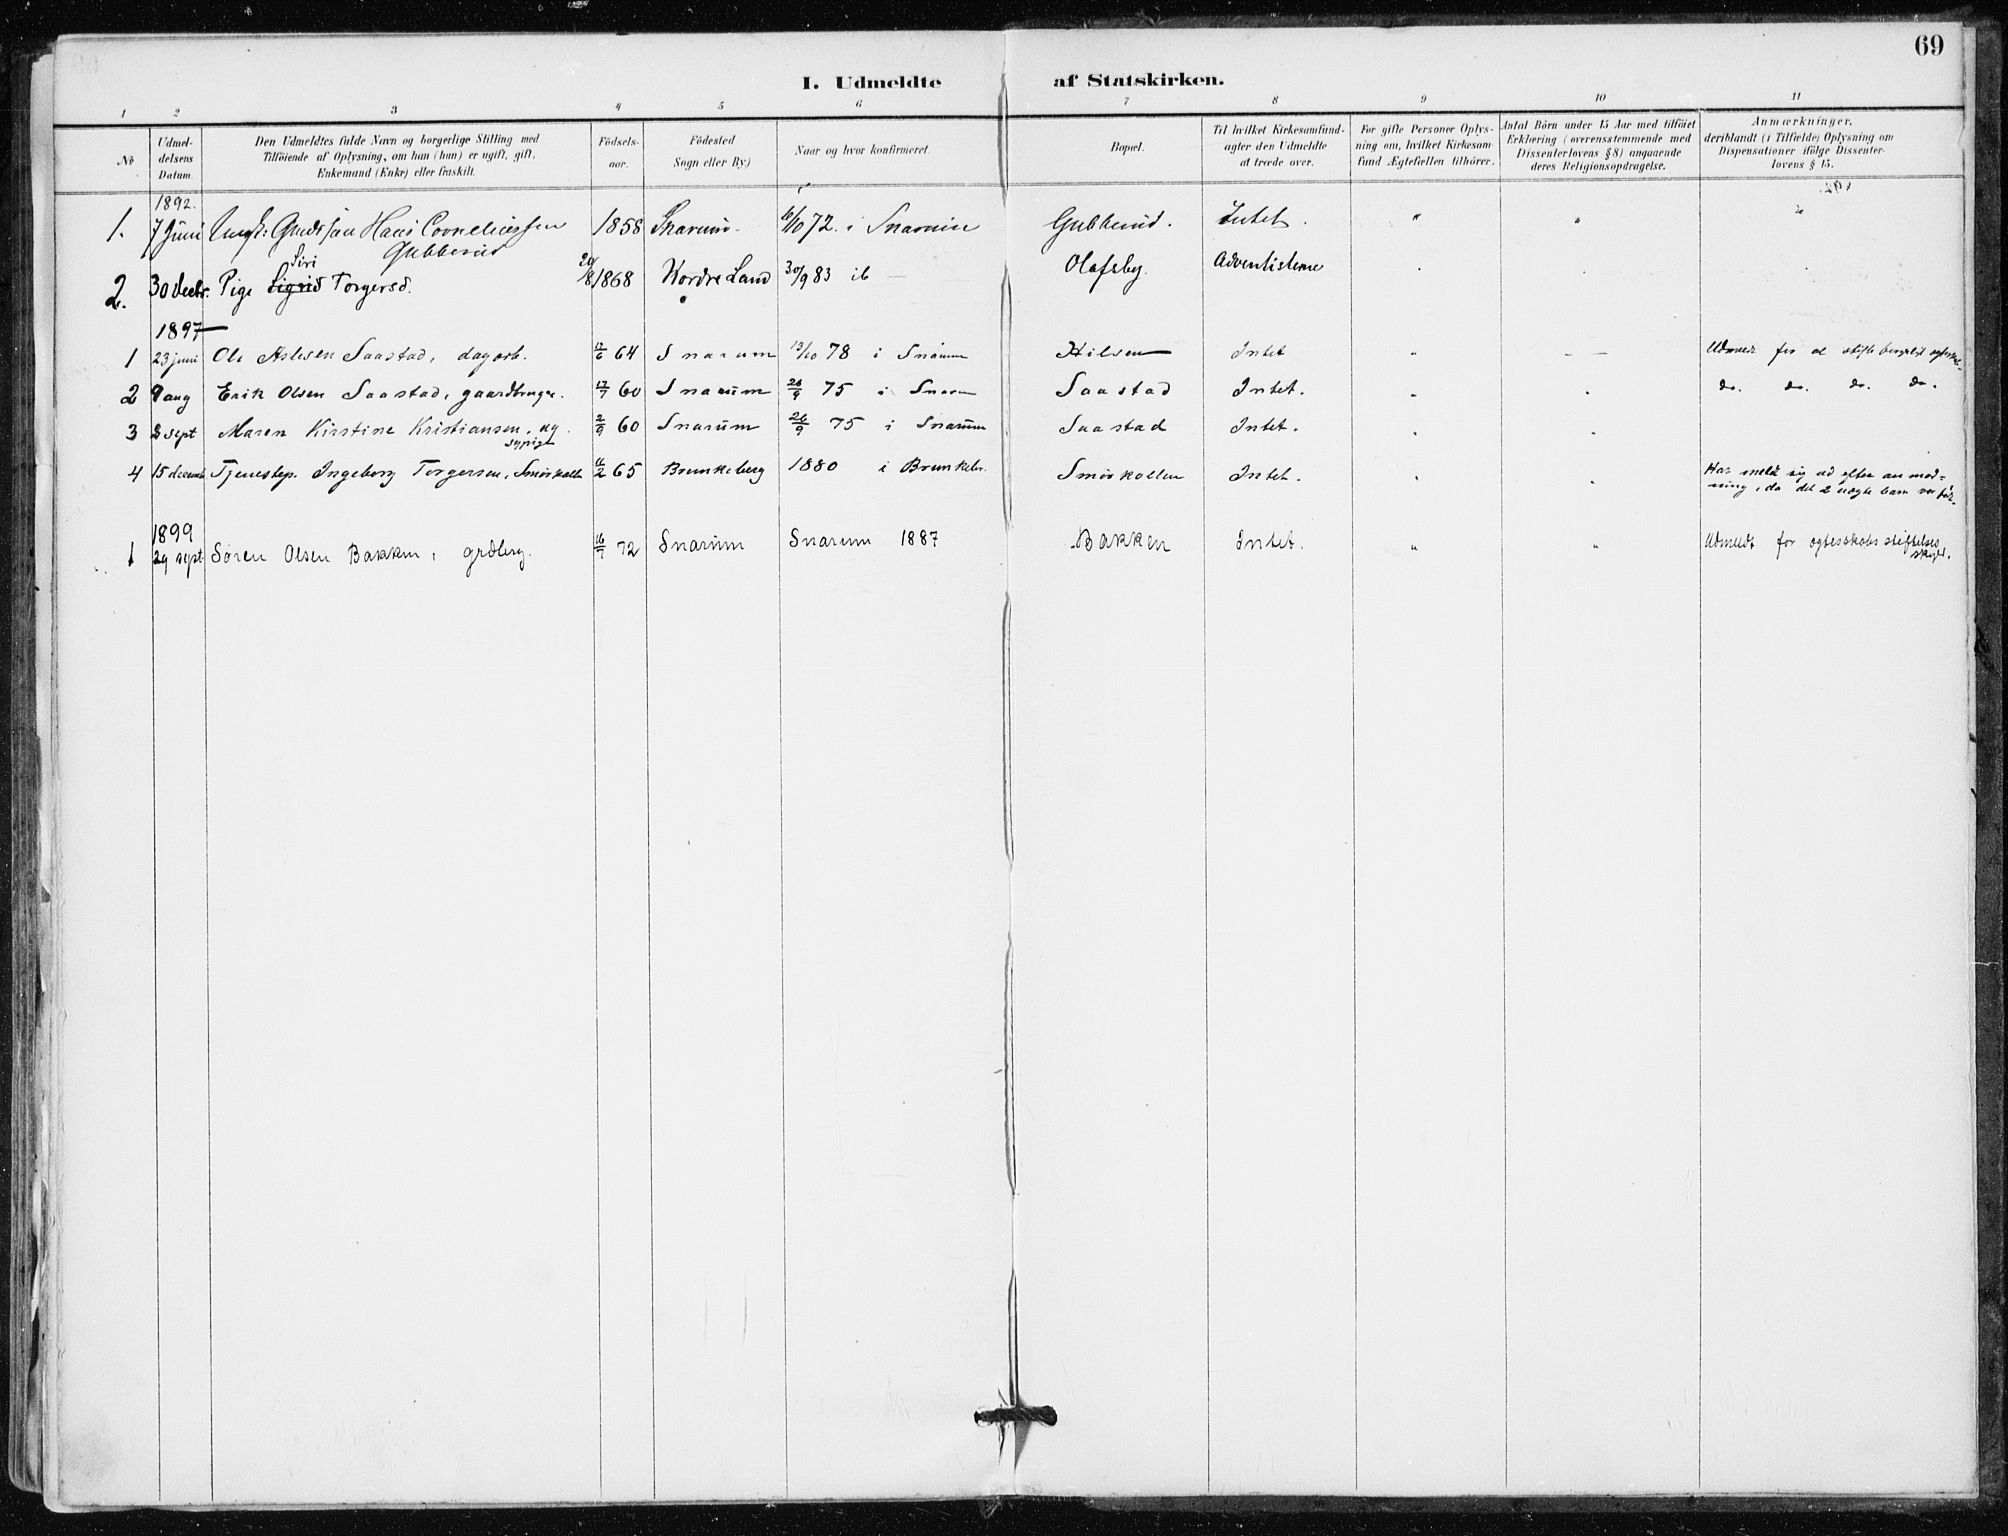 69
I. Udmeldte af Statskirken.
1 2 3 4 5 6 7 8 9 10 11
No
Udmel-
delsens
Datum.
Den Udmeldtes fulde Navn og borgerlige Stilling med
Tilföiende af Oplysning, om han (hun) er ugift, gift,
Enkemand (Enke) eller fraskilt.
Födsels-
aar.
Födested
Sogn eller By)
Naar og hvor konfirmeret.
Bopæl.
Til hvilket Kirkesamfund-
agter den Udmeldte
at træde over.
For gifte Personer Oplys-
ning om, hvilket Kirkesam-
fund Ægtefællen tilhörer.
Antal Börn under 15 Aar med tilföiet
Erklæring (overensstemmende med
Dissenterlovens § 8) angaaende
deres Religionsopdragelse.
Anmærkninger,
deriblandt (i Tilfælde) Oplysning om
Dispensationer ifölge Dissenter-
lovens § 15.
1892.
1. 7 Juni Ungk: Hans Corneliussen 1858 Snarum 6/10 72. i Snarum Gubberud. Intet. " "
Gubberud
Siri
2. 30 decbr. Pige Sigrid Torgersd. 20/8 1868 Nordre Land 30/9 83 ib — Olafsby. Adventisterne
1897
1 23 juni Ole Aslesen Saastad, dagarb. 12/6 64 Snarum 13/10 78 i Snarum Hilsen Intet " — — Udmeldt for at stifte borgerligt
2 9 aug Erik Olsen Saastad, gaardbruger. 17/7 60 Snarum 26/9 75 i Snarum Saastad Intet. do. do. do. do.
3 2 sept Maren Kirstine Kristiansen, ug. 2/9 60 Snarum 26/9 75 i Snarum Saastad Intet.
sypige
4 15 decemb. Tjenestep. Ingeborg Torgersen, Smörkollen 11/2 65 Brunkeberg 1880 i Brunkeb. Smörkollen Intet. Har meldt sig ud efter anmod-
ning, da det 2 uægte barn var föt.
1899
1 29 sept Sören Olsen Bakken, grdbrg. 16/7 72 Snarum Snarum 1887 Bakken Intet. " " Udmeldt for egteskabs stiftelses
skyld.